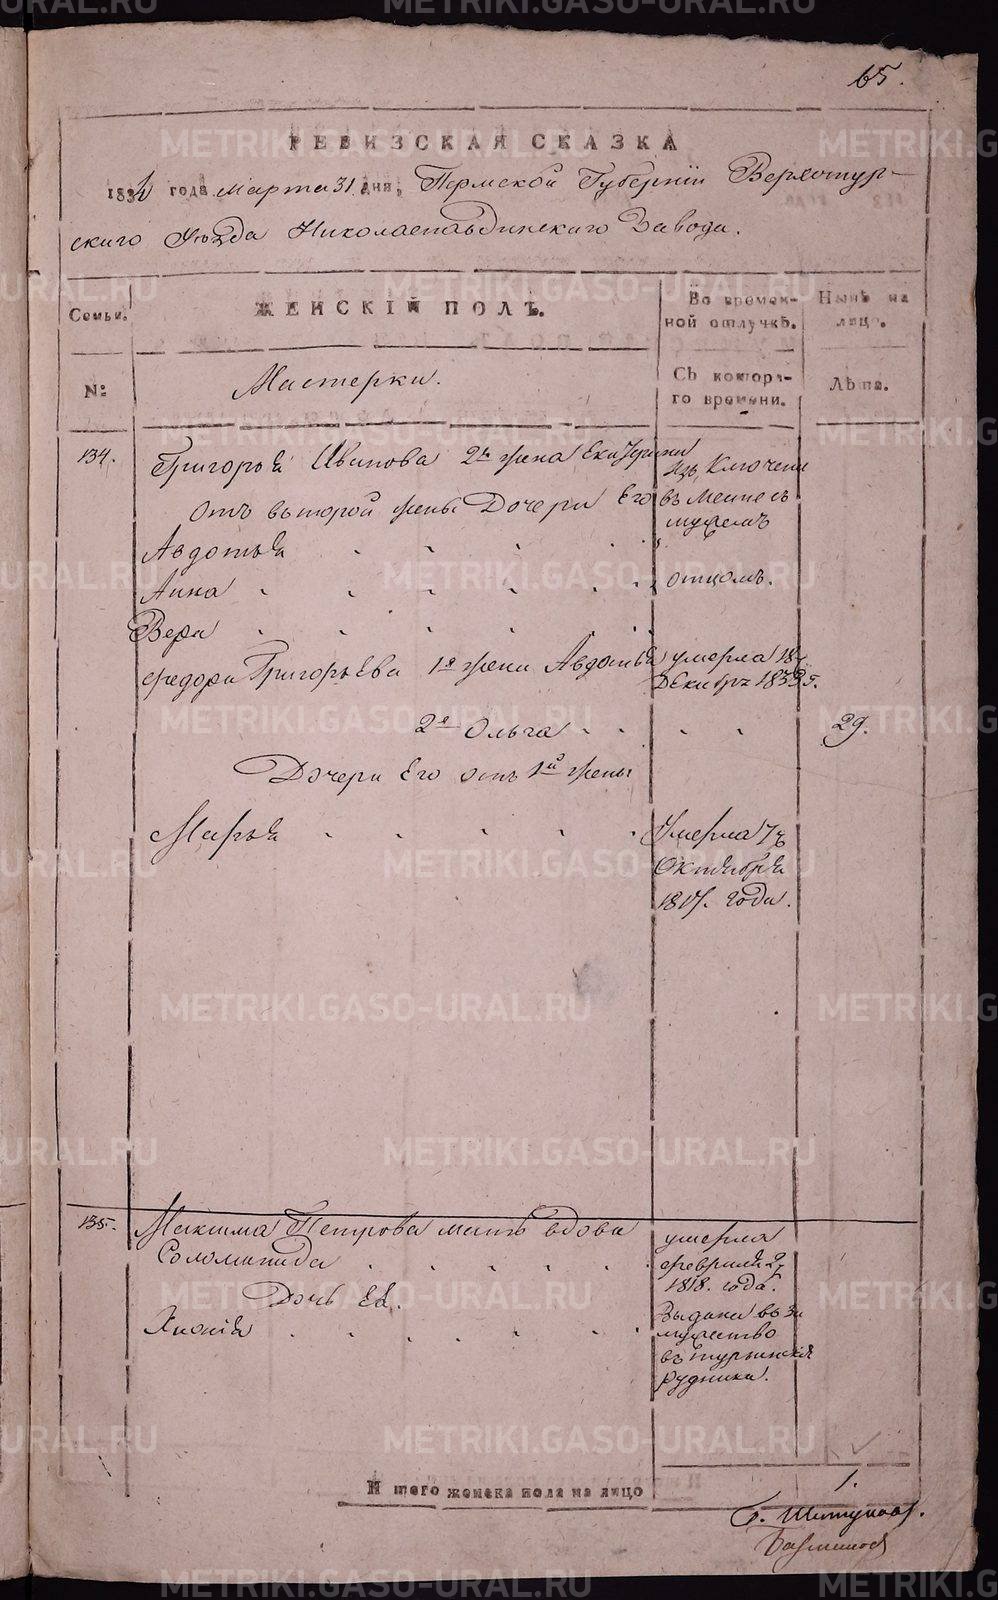 65.
РЕВИЗСКАЯ СКАЗКА
1834 года Марта 31 дня, Пермской Губернiи Верхотур-
скаго Уѣзда Николаепавдинскаго Завода.
Семьи.
ЖЕНСКIЙ ПОЛЪ.
Во времен-
ной отлучкѣ.
Нынѣ на
лицо.
№
Мастерки.
Съ котора-
го времени.
Лѣта.
134.
Григорья Иванова 2я жена Екатерина
Изключена
отъ второй жены Дочери Его
въ месте съ
мужемъ
Авдотья
Анна
отцомъ.
Вера
Федора Григорьева 1я жена Авдотья
умерла
Декабря 1833 г.
2я Ольга
29.
Дочери Его отъ 1й жены
Марья
Умерла 7ъ
Октября
1817. года.
135.
Максима Петрова мать вдова
умерла
Соломонида
февраля 27
1818. года.
Дочь Ея.
Хионiя
Выдана въ за
мужество
въ турьинскiя
рудники.
1.
И того женска пола на лицо
METRIKI.GASO-URAL.RU